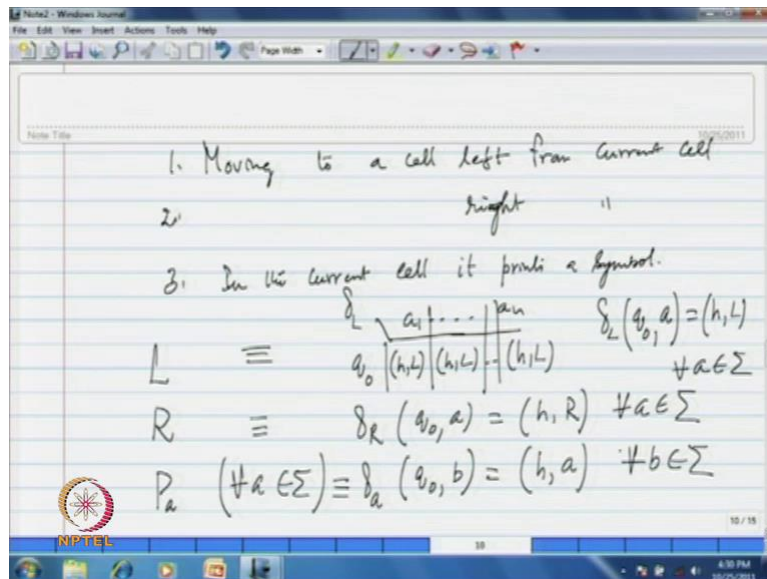 Note2 - Windows Journal
File Edit View Insert Actions Tools Help
Page Width
Note Title
10/25/2011
1. Moving to a cell left from current cell
2. right "
3. In the current cell it prints a symbol.
δ_L a₁ ... aₙ δ_L(q₀, a) = (h, L)
L ≡ q₀ (h,L) (h,L) .. (h,L) ∀a∈Σ
R ≡ δ_R(q₀, a) = (h, R) ∀a∈Σ
P_a (∀a∈Σ) ≡ δ_a(q₀, b) = (h, a) ∀b∈Σ
NPTEL
10 / 15
18
4:30 PM
10/25/2011